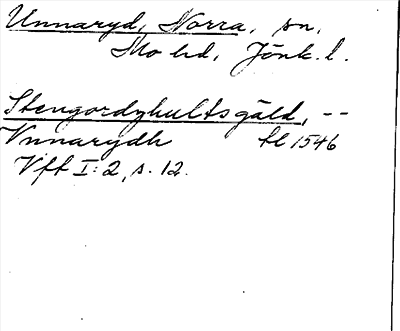 Unnaryd, Norra, sn,
Mo hd, Jönk. l.
Stengordzhultsgäld, --
Vnnarydh bl 1546
Vft I:2, s. 12.